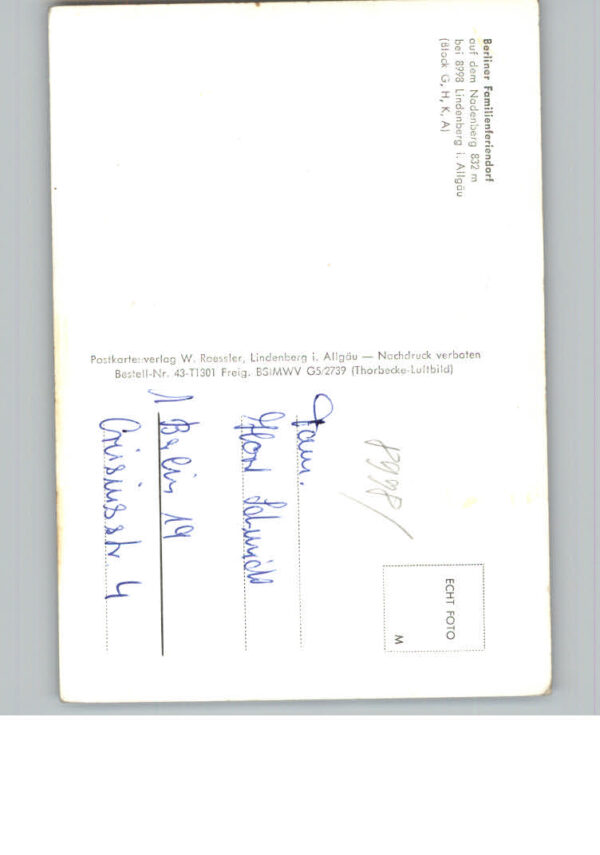 Berliner Familienferiendorf
auf dem Nadenberg 832 m
bei 8998 Lindenberg i. Allgäu
(Block G, H, K, A)
Postkartenverlag W. Roessler, Lindenberg i. Allgäu — Nachdruck verboten
Bestell-Nr. 43-T1301 Freig. BStMWV G5/2739 (Thorbecke-Luftbild)
ECHT FOTO
M
8998/
Fam.
Horst Schmidt
1 Berlin 19
4